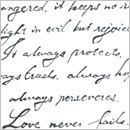 angered, it keeps no r
ight in evil but rejoice
It always protects,
ays trusts, always hop
always perseveres.
Love never fails.